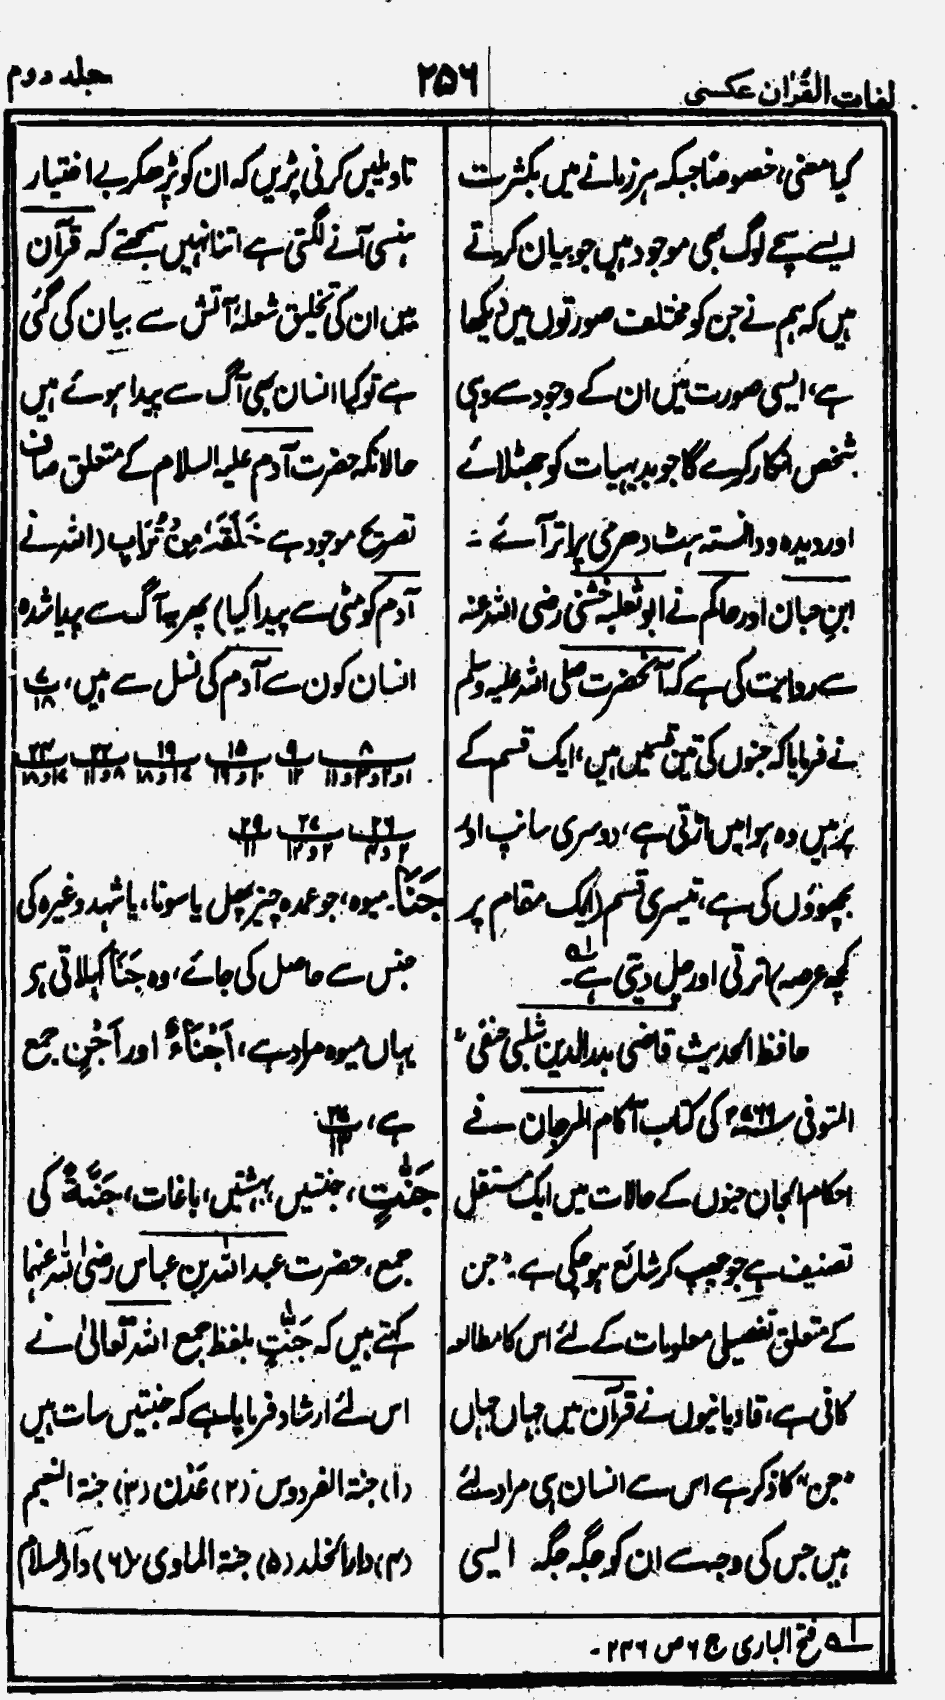 لغات القرآن عکسی
۲۵۶
جلد دوم
کیا معنی، خصوصاً جبکہ ہر زمانے میں بکثرت
ایسے سچے لوگ بھی موجود ہیں جو بیان کرتے
ہیں کہ ہم نے جن کو مختلف صورتوں میں دیکھا
ہے، ایسی صورت میں ان کے وجود سے وہی
شخص انکار کرے گا جو بدیہیات کو جھٹلائے
اور دیدہ و دانستہ ہٹ دھرمی پر اتر آئے ۔
ابن حبان اور حاکم نے ابو ثعلبہ خشنی رضی اللہ عنہ
سے روایت کی ہے کہ آنحضرت صلی اللہ علیہ وسلم
نے فرمایا کہ جنوں کی تین قسمیں ہیں، ایک قسم کے
پر ہیں وہ ہوا میں اڑتی ہے، دوسری سانپ اور
بچھوؤں کی ہے، تیسری قسم (ایک مقام پر
کچھ عرصہ) اترتی اور چل دیتی ہے۔ لہ
حافظ الحدیث قاضی بدرالدین شبلی حنفی
المتوفی ۷۶۹ھ کی کتاب آکام المرجان نے
احکام الجان جنوں کے حالات میں ایک مستقل
تصنیف ہے جو چھپ کر شائع ہو چکی ہے۔ "جن
کے متعلق تفصیلی معلومات کے لئے اس کا مطالعہ
کافی ہے، قادیانیوں نے قرآن میں جہاں جہاں
"جن" کا ذکر ہے اس سے انسان ہی مراد لئے
ہیں جس کی وجہ سے ان کو جگہ جگہ ایسی
تاویلیں کرنی پڑیں کہ ان کو پڑھکر بے اختیار
ہنسی آنے لگتی ہے اتنا نہیں سمجھتے کہ قرآن
میں ان کی تخلیق شعلۂ آتش سے بیان کی گئی
ہے تو کیا انسان بھی آگ سے پیدا ہوئے ہیں
حالانکہ حضرت آدم علیہ السلام کے متعلق صاف
تصریح موجود ہے خَلَقَهٗ مِنْ تُرَابٍ (اللہ نے
آدم کو مٹی سے پیدا کیا) پھر یہ آگ سے پیدا شدہ
انسان کون سے آدم کی نسل سے ہیں، ۷ ۱۸
۸ ۱ و ۲ و ۳ و ۱۱ ۹ ۱۲ ۱۵ ۱۰ و ۱۹ ۱۹ ۱۷ و ۱۸ ۲۲ ۸ و ۱۱ ۲۴ ۱۷ و ۱۸
۲۶ ۲ و ۴ ۲۷ ۲ و ۱۲ ۲۹ ۱۱
جَنَا۔ میوہ، جو عمدہ چیز پھل یا سونا، یا شہد وغیرہ کی
جنس سے حاصل کی جائے، وہ جَنَا کہلاتی ہے
یہاں میوہ مراد ہے، اَجْنَاءٌ اور اَجْنٍ جمع
ہے، ۲۷ ۱۳
جَنّٰتٍ، جنتیں، بہشتیں، باغات، جَنَّةٌ کی
جمع، حضرت عبداللہ بن عباس رضی اللہ عنہما
کہتے ہیں کہ جَنّٰتٍ بلفظ جمع اللہ تعالیٰ نے
اس لئے ارشاد فرمایا ہے کہ جنتیں سات ہیں
(۱) جنۃ الفردوس (۲) عَدْن (۳) جنۃ النعیم
(۴) دار الخلد (۵) جنۃ الماویٰ (۶) دار السلام
لہ فتح الباری ج ۶ ص ۲۴۶ ۔